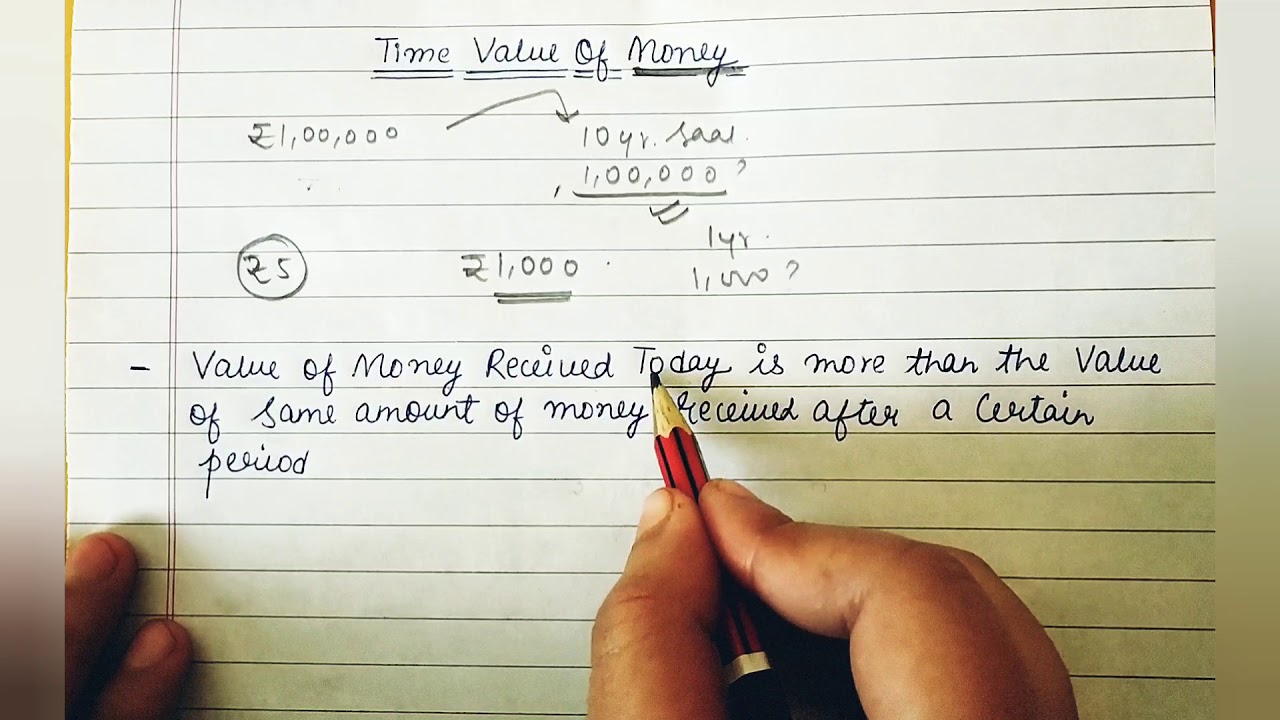 Time Value Of Money
₹1,00,000
10yr. saal.
1,00,000?
1yr.
₹5
₹1,000
1,000?
- Value of Money Received Today is more than the Value
of same amount of money received after a certain
period